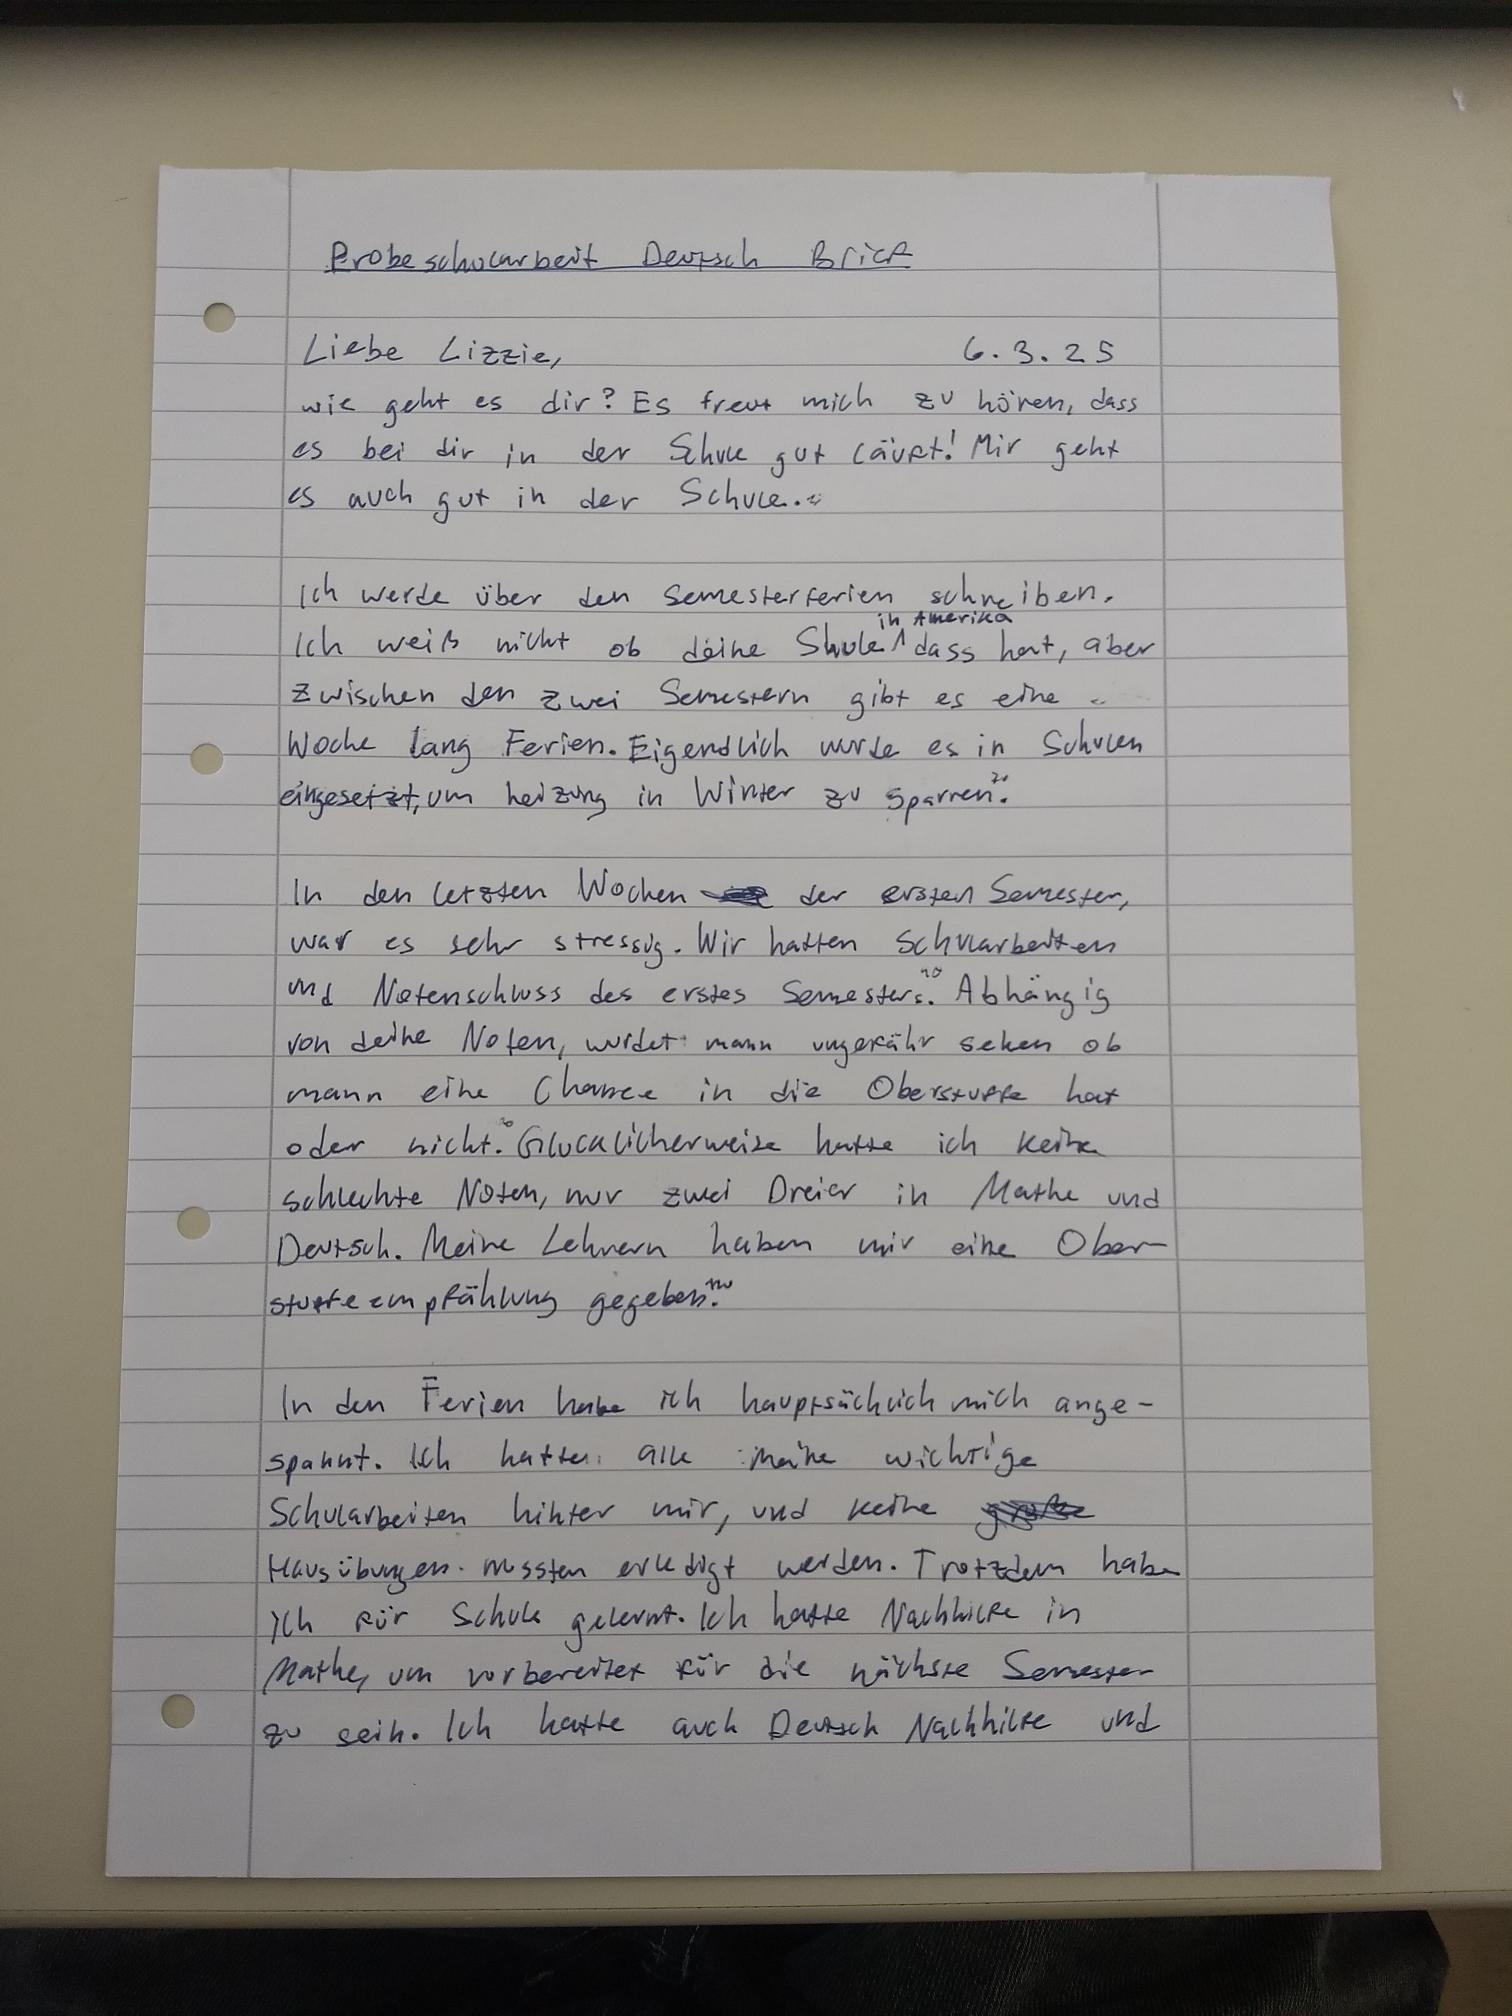 Probeschularbeit Deutsch Brief
Liebe Lizzie, 6.3.25
wie geht es dir? Es freut mich zu hören, dass
es bei dir in der Schule gut läuft! Mir geht
es auch gut in der Schule.
Ich werde über den Semesterferien schreiben.
in Amerika
Ich weiß nicht ob deine Shule dass hat, aber
zwischen den zwei Semestern gibt es eine
Woche lang Ferien. Eigendlich wurde es in Schulen
eingesetzt, um heizung in Winter zu sparren.
In den letzten Wochen der ersten Semester,
war es sehr stressig. Wir hatten Schularbeiten
und Notenschluss des erstes Semesters. Abhängig
von deine Noten, wurdet mann ungefähr sehen ob
mann eine Chance in die Oberstuffe hat
oder nicht. Glucklicherweise hatte ich keine
schlechte Noten, nur zwei Dreier in Mathe und
Deutsch. Meine Lehrern haben mir eine Ober-
stuffeempfählung gegeben.
In den Ferien habe ich hauptsächlich mich ange-
spannt. Ich hatte alle meine wichtige
Schularbeiten hinter mir, und keine
Hausübungen mussten erledigt werden. Trotzdem habe
ich für Schule gelernt. Ich hatte Nachhilfe in
Mathe, um vorbereitet für die nächste Semester
zu sein. Ich hatte auch Deutsch Nachhilfe und